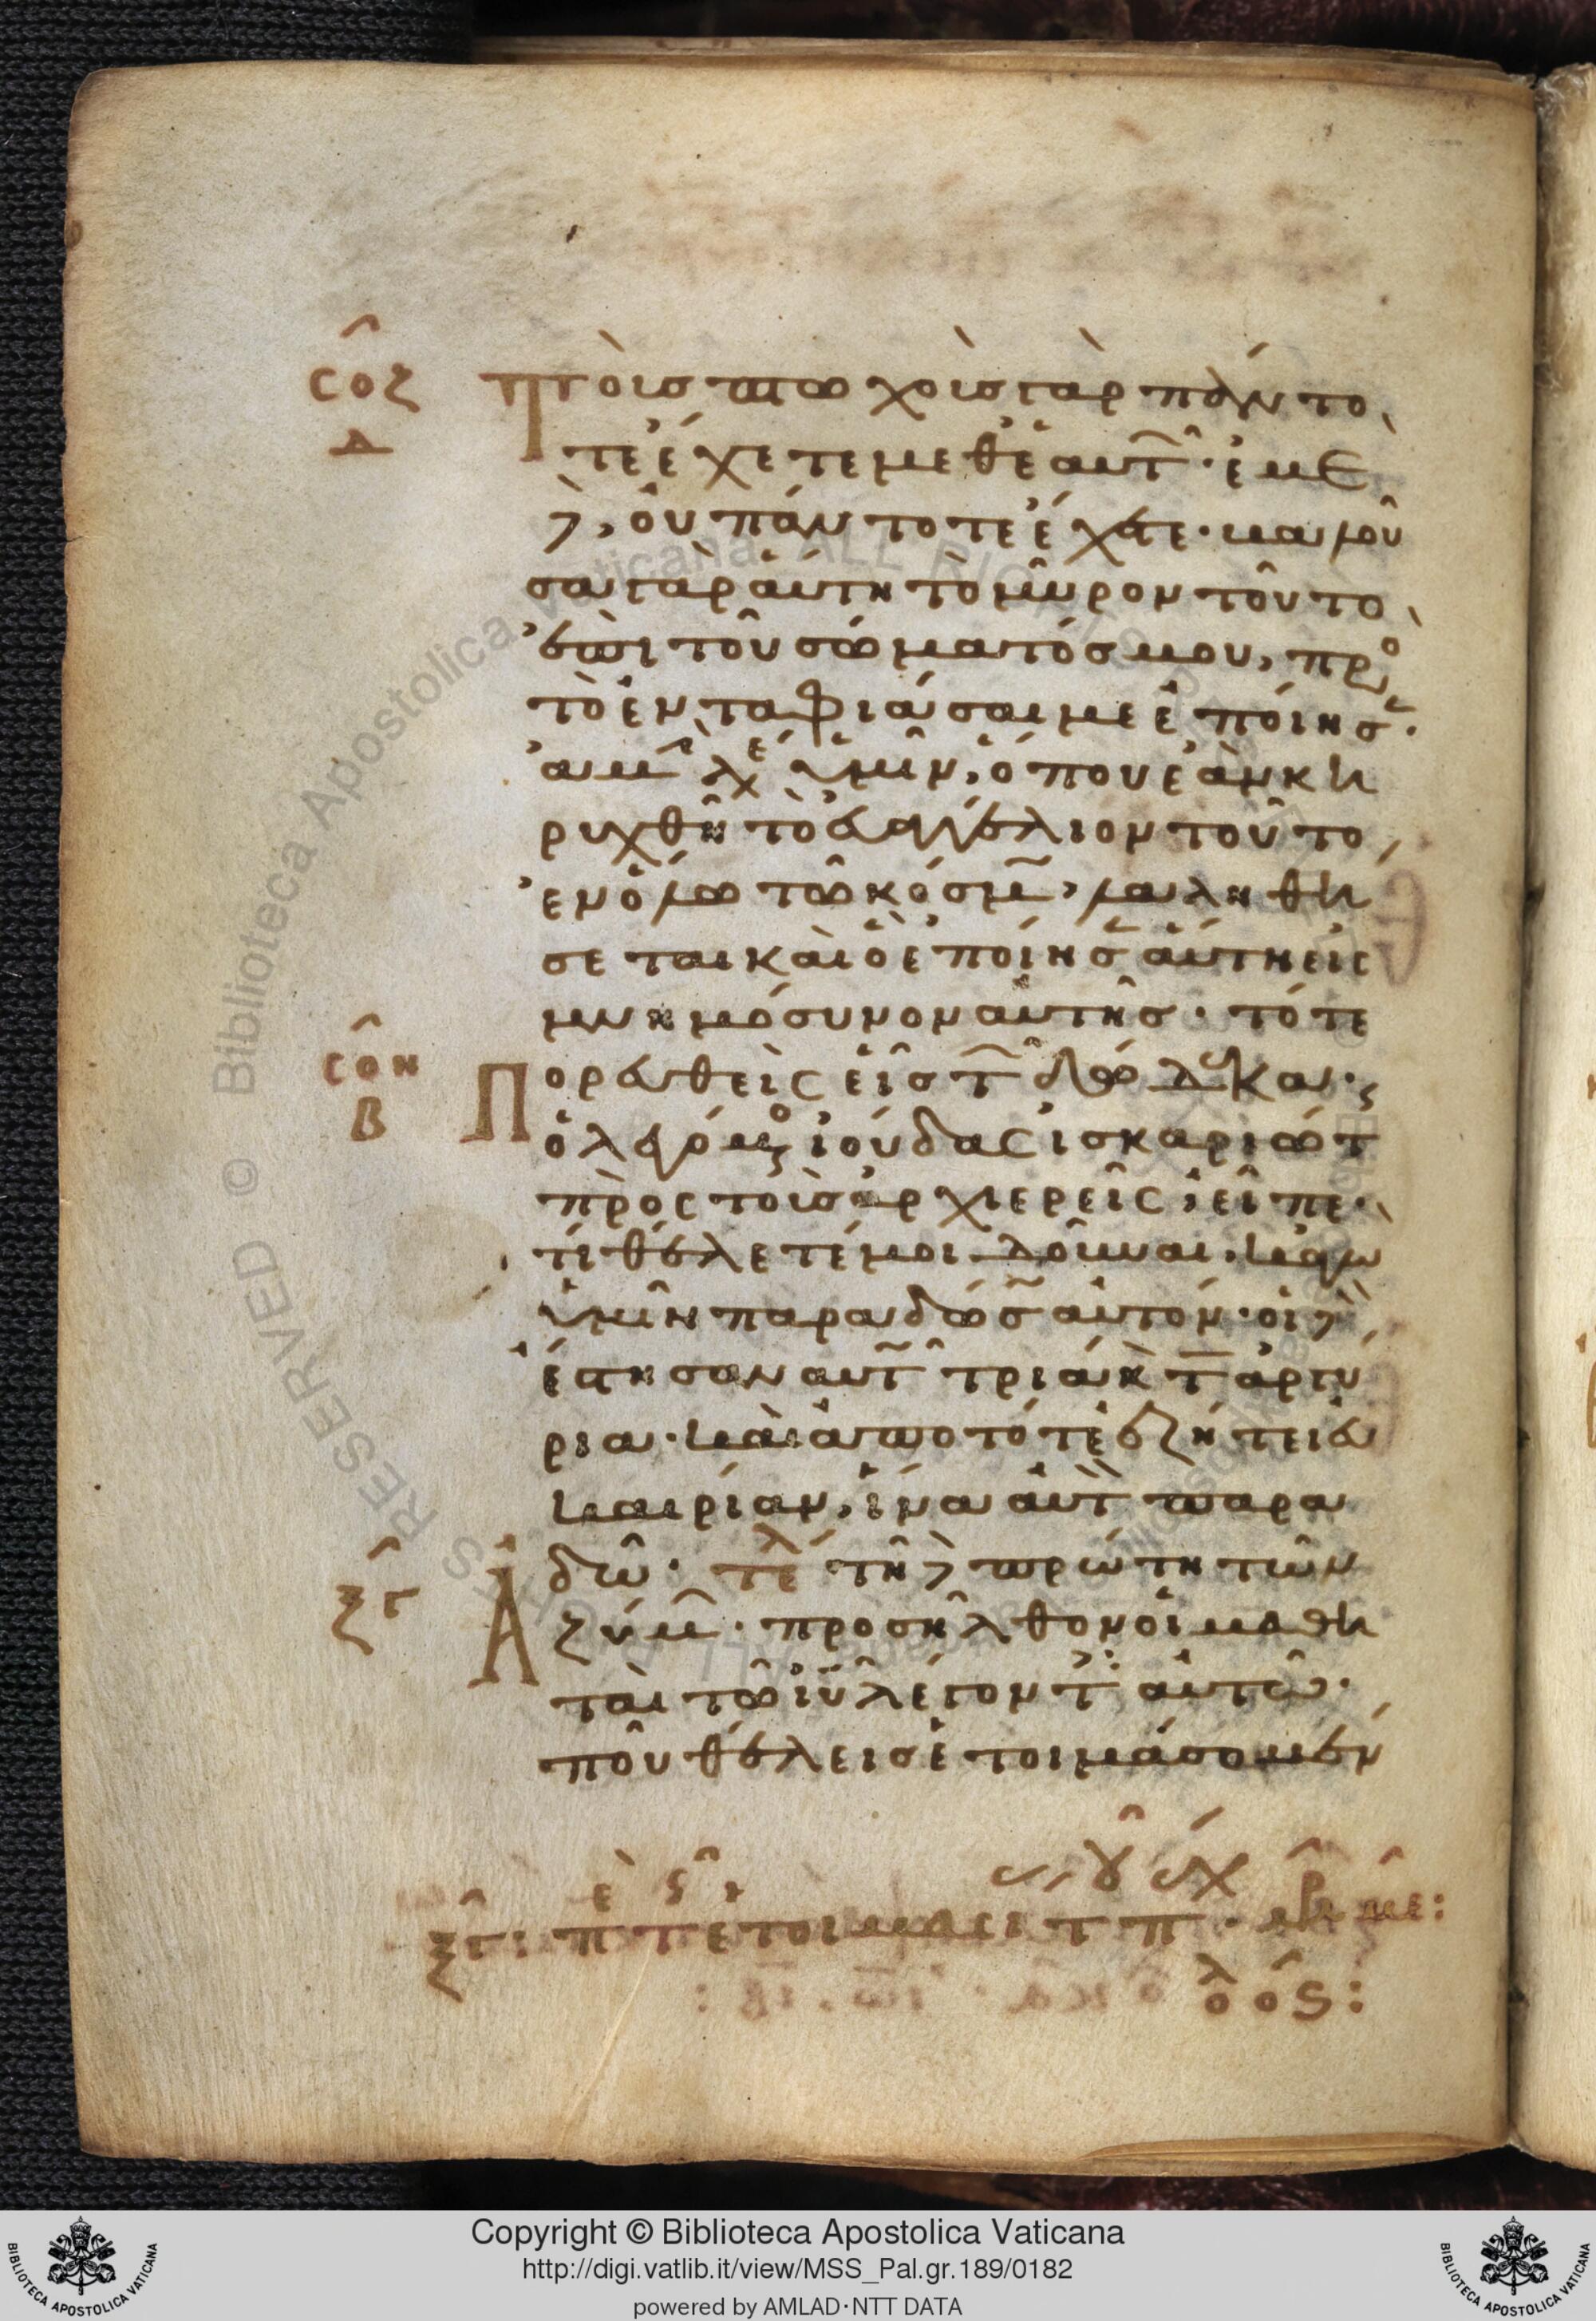 σος
Δ
τοὺς πτωχοὺς γὰρ πάντο
τε ἔχετε μεθ ἑαυτ· ἐμε
δ, οὐ πάντοτε ἔχετε· βαλοῦ
σα γὰρ αὕτη τὸ μύρον τοῦτο
ἐπὶ τοῦ σώματός μου, πρ
τὸ ἐνταφιάσαι με ἐποίησ·
ἀμ λε ὑμῖν, ὅπου ἐὰν κη
ρυχθῆ τὸ εὐαγγέλιον τοῦτο
ἐν ὅλω τῶ κόσμ, λαληθή
σεται καὶ ὃ ἐποίησ αὕτη εἰς
μνημόσυνον αὐτῆς· τότε
σοη
Β
Πορευθεὶς εἷς τ δώδεκα·
ὁ λεγόμ ἰούδας ἰσκαριώτ
πρὸς τοὺς ἀρχιερεῖς, εἶπε·
τί θέλετέ μοι δοῦναι, κἀγὼ
ὑμῖν παραδώσ αὐτόν· οἱ δ
ἔστησαν αὐτ τριάκ τ ἀργύ
ρια· καὶ ἀπὸ τότε ἐζήτει εὐ
καιρίαν, ἵνα αὐτ παρα
δῶ· τελ τῆ δ πρώτη τῶν
ξγ
Ἀζύμ· προσῆλθον οἱ μαθη
ταὶ τῶ ἰυ λέγοντ αὐτῶ·
ποῦ θέλεις ἑτοιμάσομέν
ξγ: π τ ἑτοιμασι τ π·
Copyright © Biblioteca Apostolica Vaticana
http://digi.vatlib.it/view/MSS_Pal.gr.189/0182
powered by AMLAD·NTT DATA
BIBLIOTECA APOSTOLICA VATICANA
BIBLIOTECA APOSTOLICA VATICANA